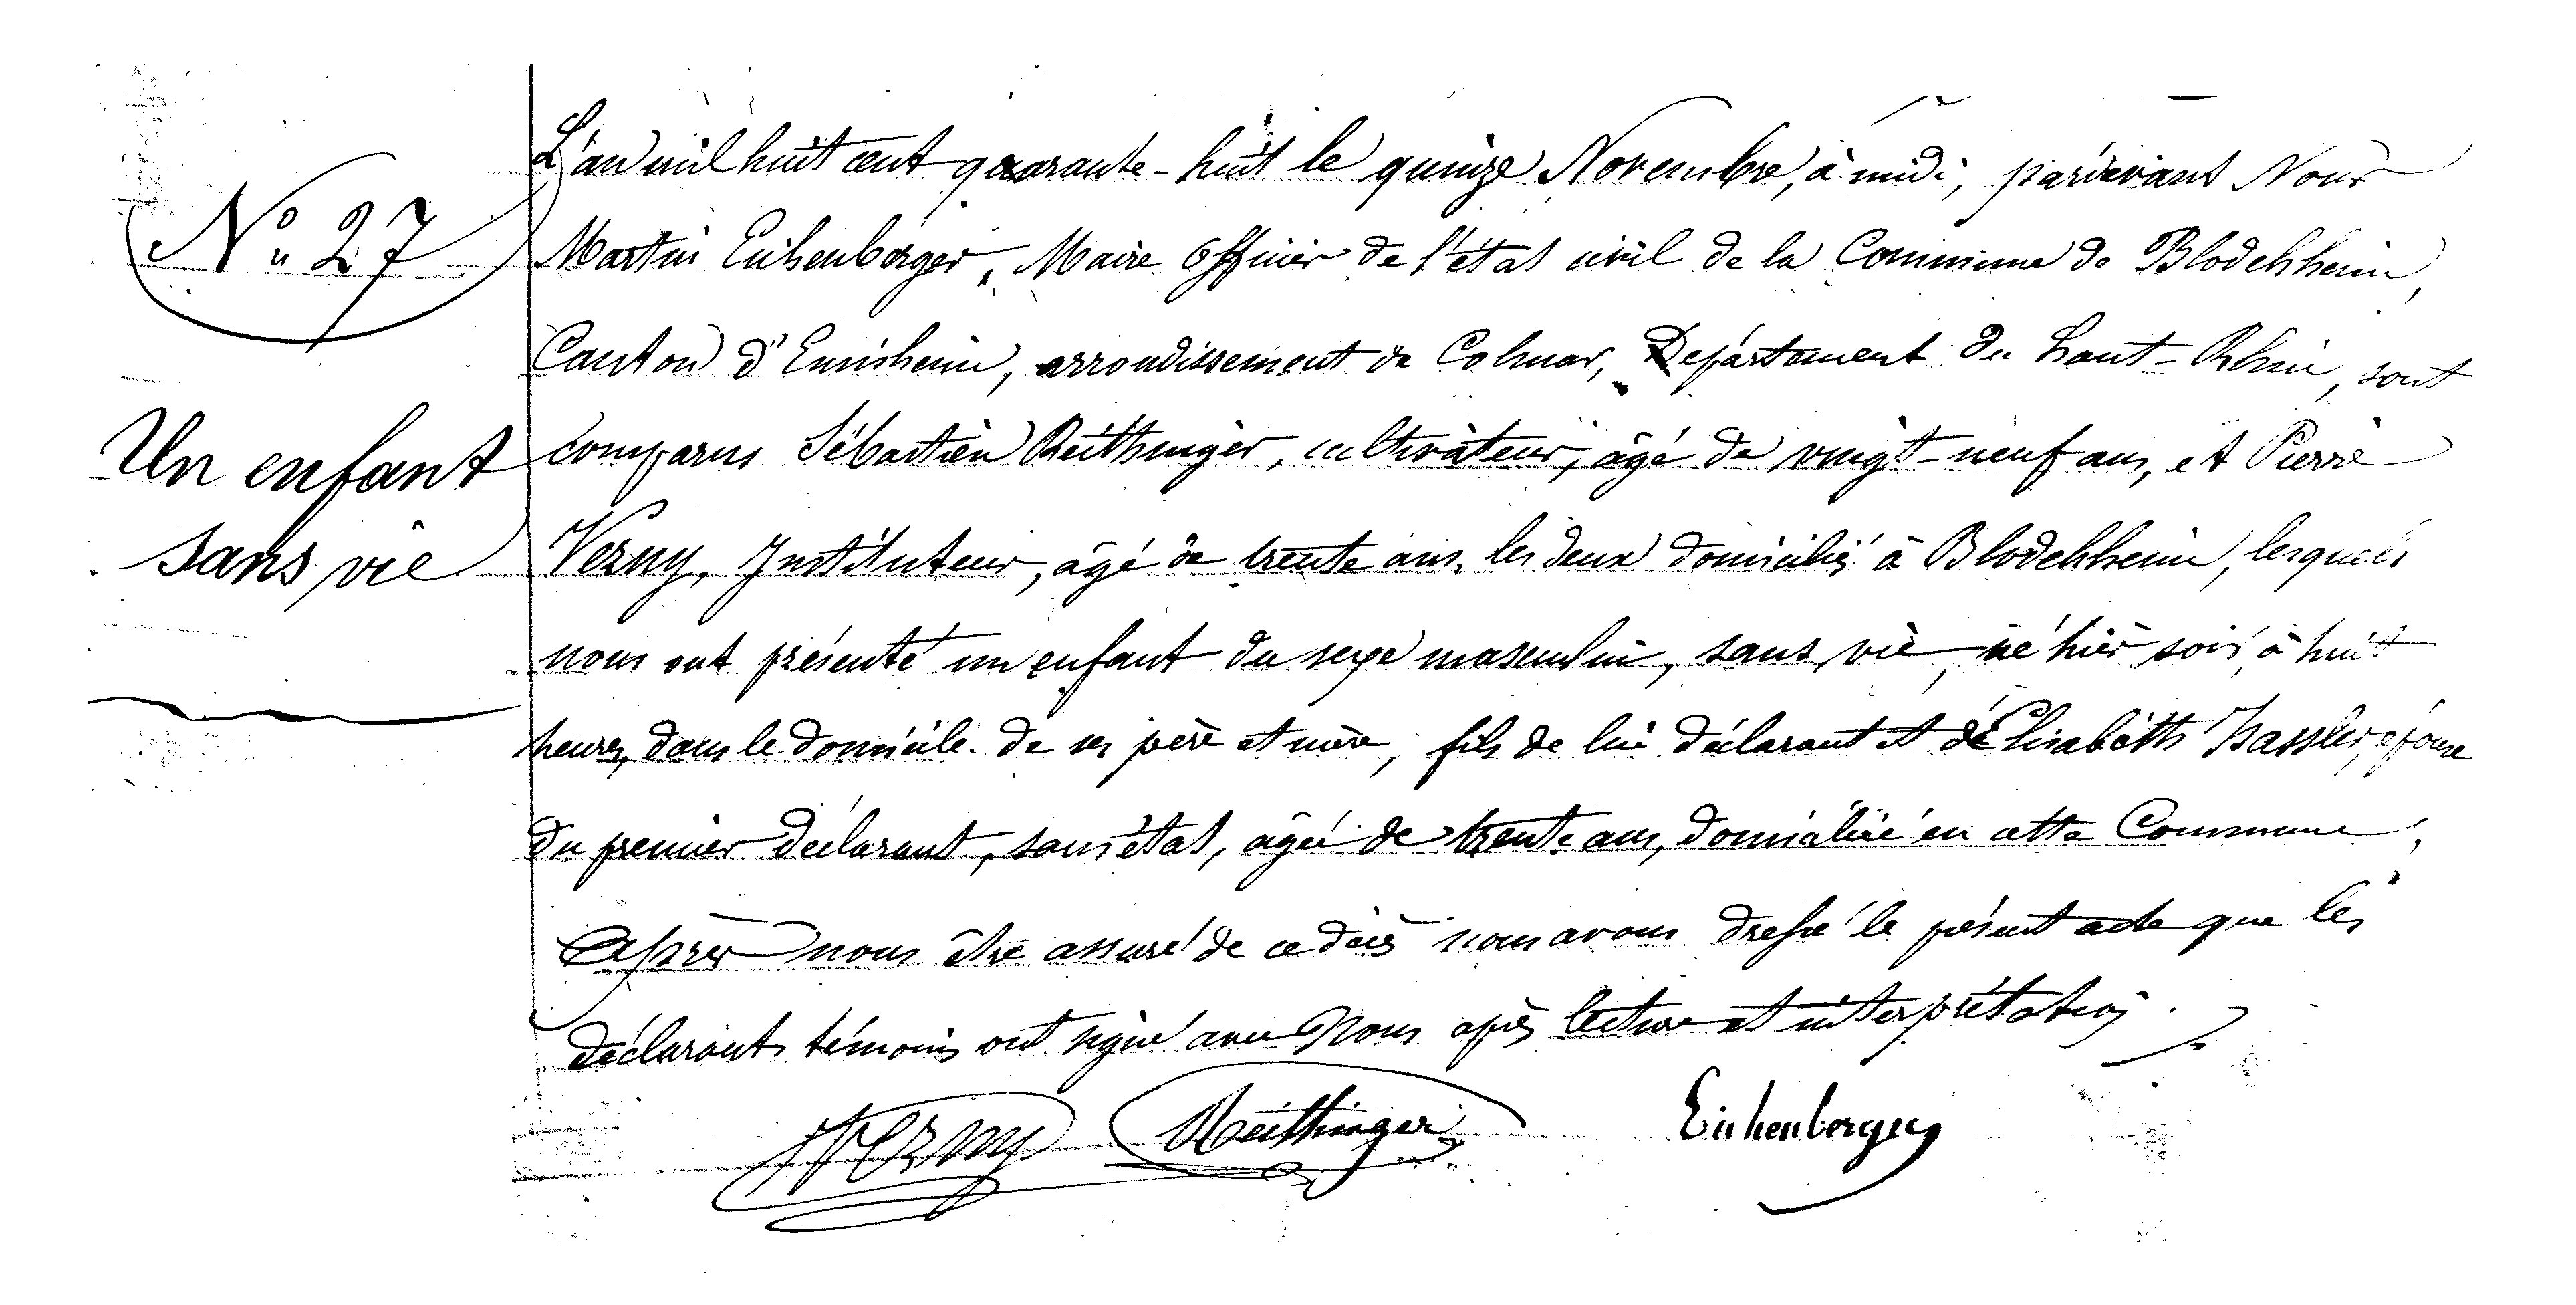 N° 27
Un enfant
sans vie
L'an mil huit cent quarante-huit le quinze Novembre, à midi, pardevant Nous
Martin Eichenberger, Maire Officier de l'état civil de la Commune de Blodelsheim,
Canton d'Ensisheim, arrondissement de Colmar, Département du haut-Rhin, sont
comparus Sébastien Reithinger, cultivateur, âgé de vingt-neuf ans, et Pierre
Verny, Instituteur, âgé de trente ans, les deux domiciliés à Blodelsheim, lesquels
nous ont présenté un enfant du sexe masculin, sans vie, né hier soir, à huit
heures, dans le domicile de ses père et mère, fils de lui déclarant et d'Elisabeth Hassler, épouse
du premier déclarant, sans état, âgée de trente ans, domiciliée en cette Commune,
Après nous être assuré de ce décès nous avons dressé le présent acte que les
déclarants témoins ont signé avec Nous après lecture et interprétation.
Verny Reithinger Eichenberger